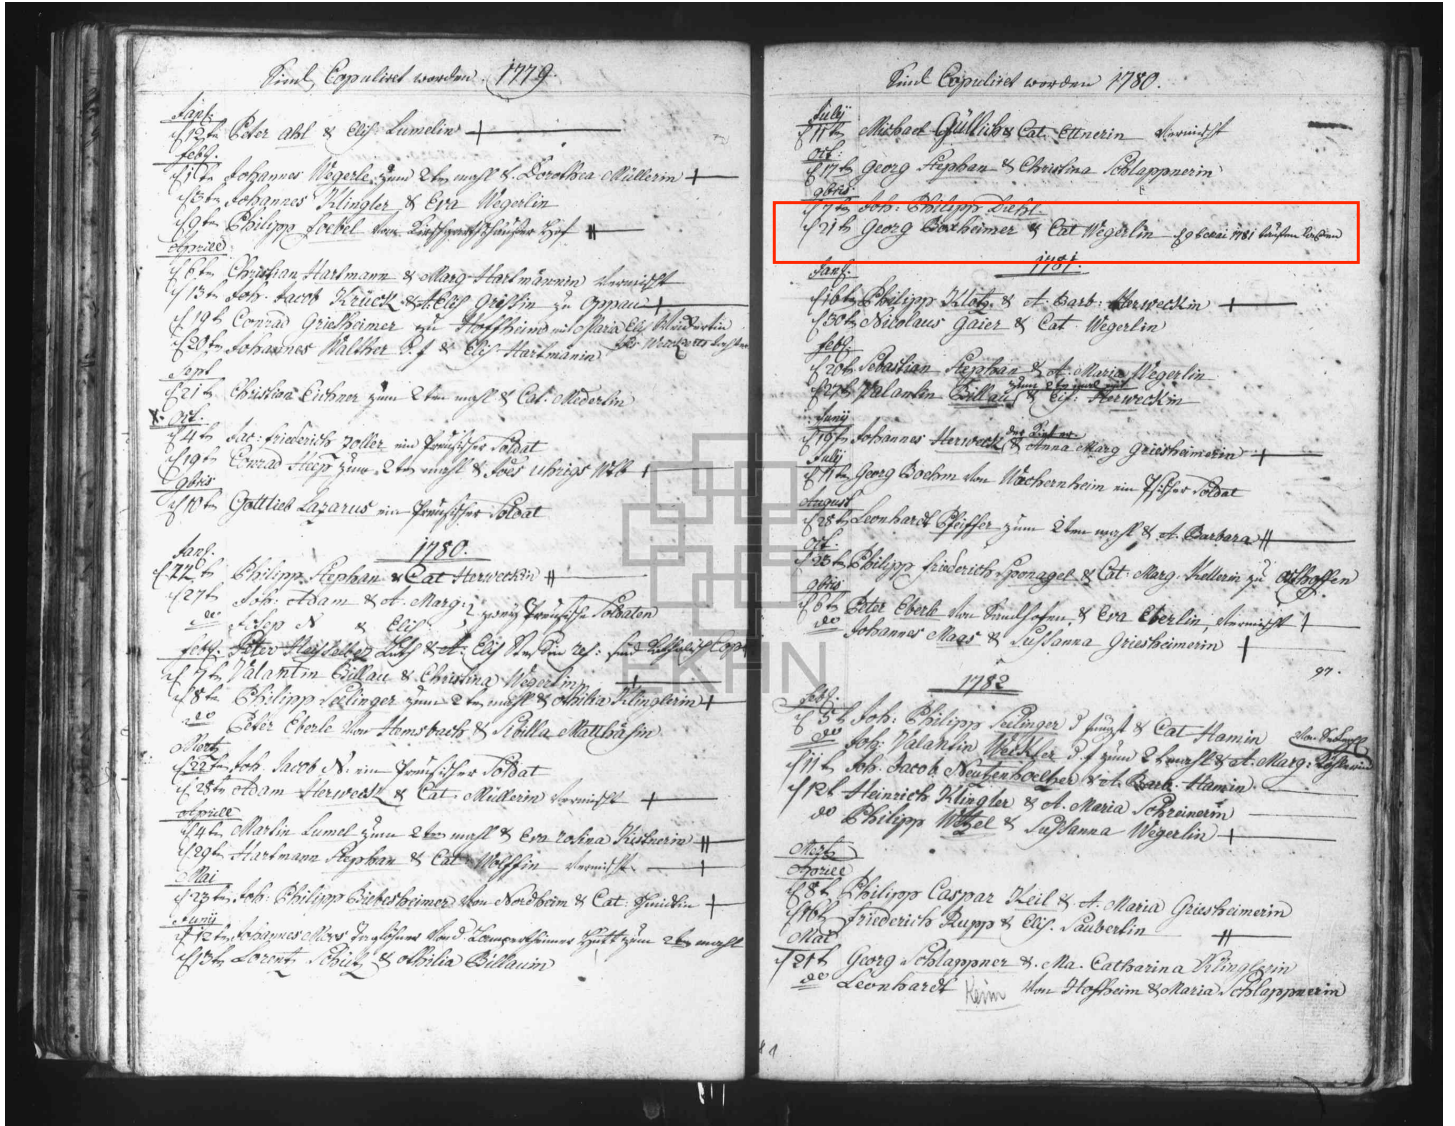 Sind Copuliret worden. 1779.
Janr.
d 12tn Peter Ahl & Elis. Lumelin
febr.
d 1tn Johannes Wegerle zum 2tn mahl & Dorothea Müllerin
d 3tn Johannes Klingler & Eva Wegerlin
d 9tn Philipp Loebel von
Aprill
d 6tn Christian Hartmann & Marg. Hartmännin vermischt
d 13tn Joh. Jacob Krück & Elis Größlin zu Oppau
d 19tn Conrad Griesheimer zu Hoffheim mit Maria Elis
d 20tn Johannes Walther & Elis. Hartmänin
Sept
d 21tn Christian Eichner zum 2tn mahl & Cat. Mederlin
X. Oct.
d 4tn Jac: friederich Zoller ein Preusischer Soldat
d 19tn Conrad Heep zum 2tn mahl & Joes Uhrigs Witt
9bris
d 10tn Gottlieb Lazarus ein Preusischer Soldat
1780.
Janr.
d 22tn Philipp Stephan & Cat Herweckin
d 27tn Joh: Adam & A. Marg: 2 zwey Preusische Soldaten
do N & Elis
febr. Peter & A. Elis
d 7tn Valantin Billau & Christina Wegerlin
d 8tn Philipp Seelinger zum 2tn mahl & Othilia Klinglerin
do Peter Eberle von Hemsbach & Sibilla Matthäsin
Mertz
d 22tn Joh. Jacob N. ein Preusischer Soldat
d 28tn Adam Herweck & Cat. Müllerin vermischt
Aprill
d 4tn Martin Lumel zum 2tn mahl & Eva rosina Kistnerin
d 29tn Hartmann Stephan & Cat Wolffin vermischt
Mai
d 23tn Joh: Philipp Biebesheimer von Nordheim & Cat:
Juny
d 12tn Johannes Moos Taglöhner von d Lampertheimer Hütt zum 2tn mahl
d 13tn Lorentz Schütz & Othilia Billauin
Sind Copuliret worden 1780.
July
d 11tn Michael Güllich & Cat. Ettnerin vermischt
Oct:
d 17tn Georg Stephan & Christina Schlappnerin
9bris
d 7tn Joh: Philipp Diehl
d 21tn Georg Boxheimer & Cat Wegerlin
1781.
Janr.
d 16tn Philipp Klotz & A. Barb: Herweckin
d 30tn Nicolaus Gaier & Cat. Wegerlin
febr.
d 20tn Sebastian Stephan & A. Maria Wegerlin
zum 2tn mal mit
d 27tn Valantin Billau & Elis: Herweckin
Juny
d 19tn Johannes Herweck & Anna Marg Griesheimerin
July
d 11tn Georg Boehm von Wachernheim ein Soldat
August
d 28tn Leonhardt Pfeiffer zum 2tn mahl & A. Barbara
Oct.
d 23tn Philipp friederich Sponagel & Cat. Marg. Kellerin zu Osthoffen
9bris
d 6tn Peter Eberle von Sandhofen & Eva Eberlin vermischt
do Johannes Maas & Sussanna Griesheimerin
97.
1782
febr.
d 5tn Joh: Philipp Seelinger d jüngst & Cat Hamin
do Joh: Valantin zum 2tn mahl & A. Marg:
d 11tn Joh Jacob & A. Barb. Hamin
d 12tn Heinrich Klingler & A. Maria Schreinerin
do Philipp Wetzel & Sussanna Wegerlin
Mertz
Aprill
d 8tn Philipp Caspar Keil & A. Maria Griesheimerin
d 16tn friederich Rupp & Elis. Saubertin
Mai
d 21tn Georg Schlappner & Ma. Catharina Klinglerin
do Leonhardt Keim von Hofheim & Maria Schlappnerin
EKHN